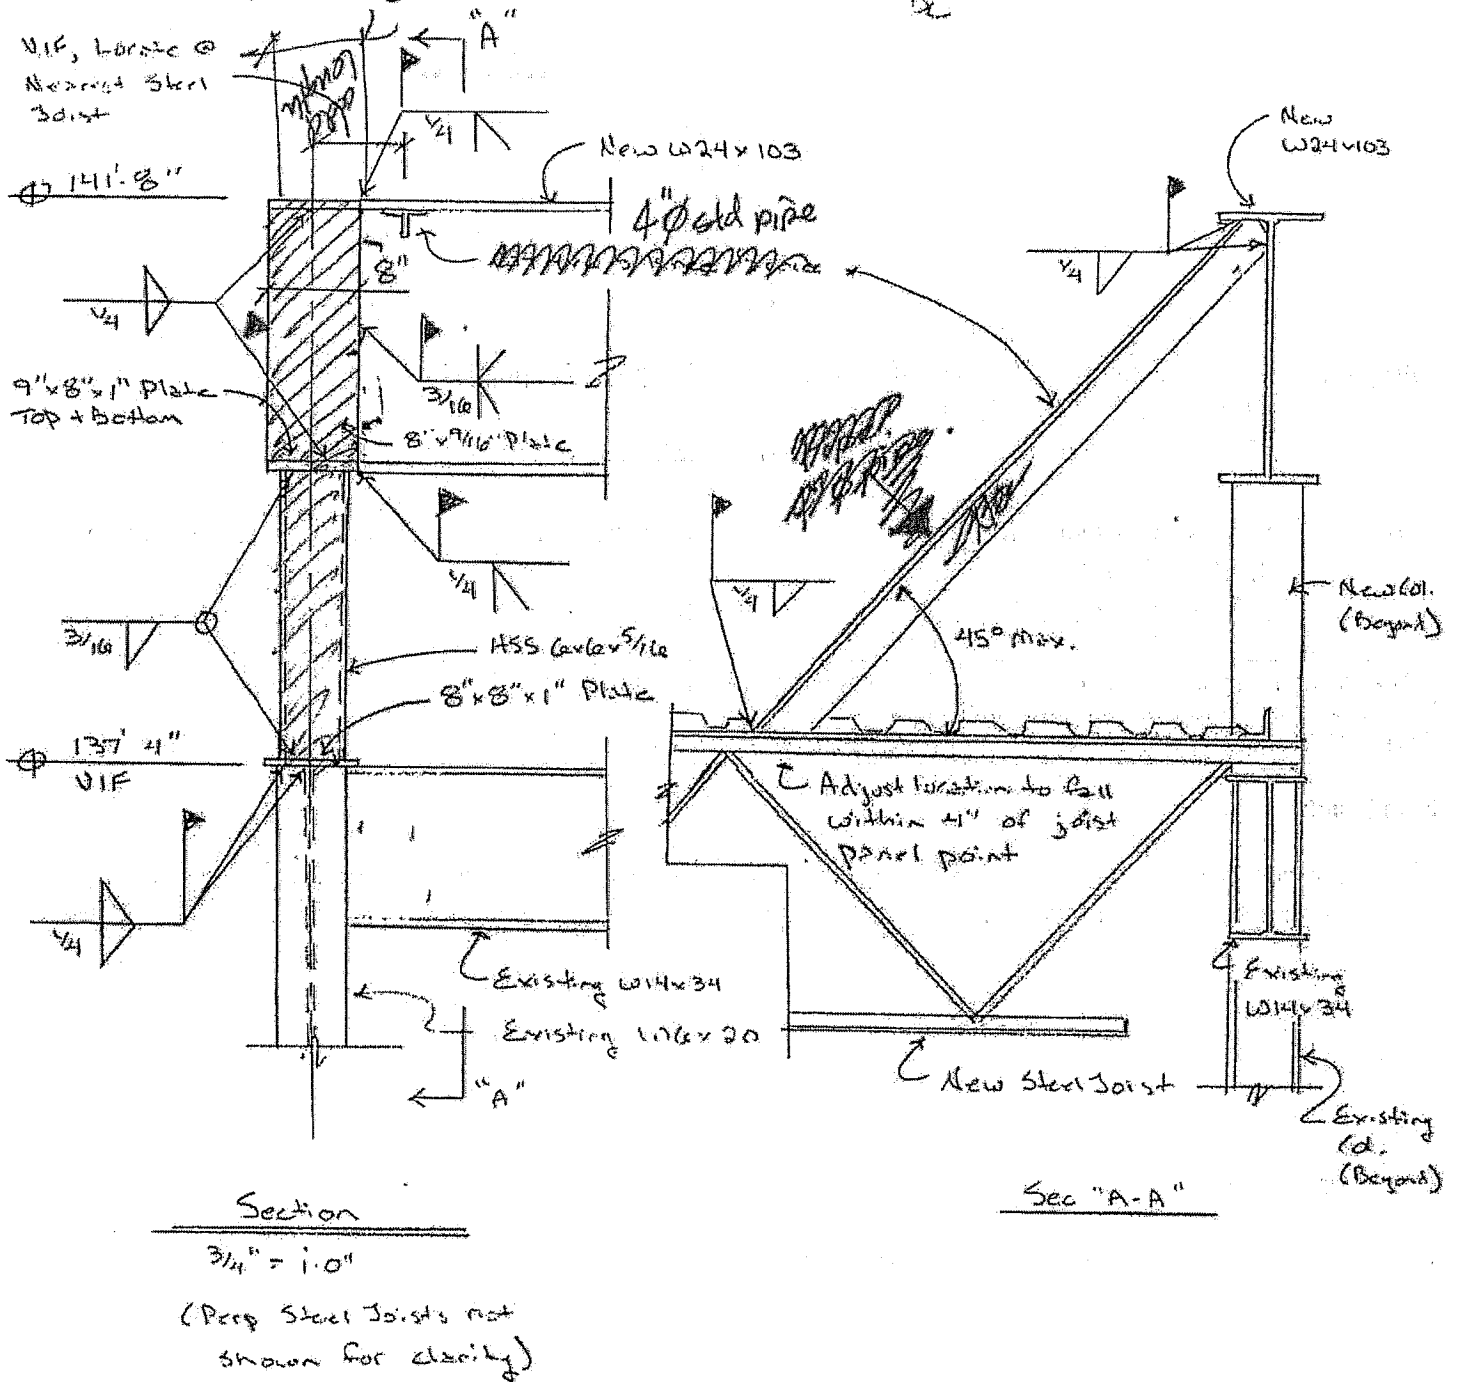 "A"
V.I.F, Locate @
Nearest Steel
Joist
add
length
1/4
New W24x103
New
W24x103
141'-8"
4"φ std pipe
8"
1/4
1/4
9"x8"x1" Plate
Top + Bottom
3/16
8"x9/16" Plate
1/4
1/4
New Col.
(Beyond)
45° Max.
3/16
HSS 6x6x5/16
8"x8"x1" Plate
137' 4"
VIF
Adjust location to fall
within ±1" of joist
panel point
1/4
Existing W14x34
Existing W6x20
Existing
W14x34
New Steel Joist
"A"
Existing
Col.
(Beyond)
Section
3/4" = 1'-0"
(Perp Steel Joists not
shown for clarity)
Sec "A-A"